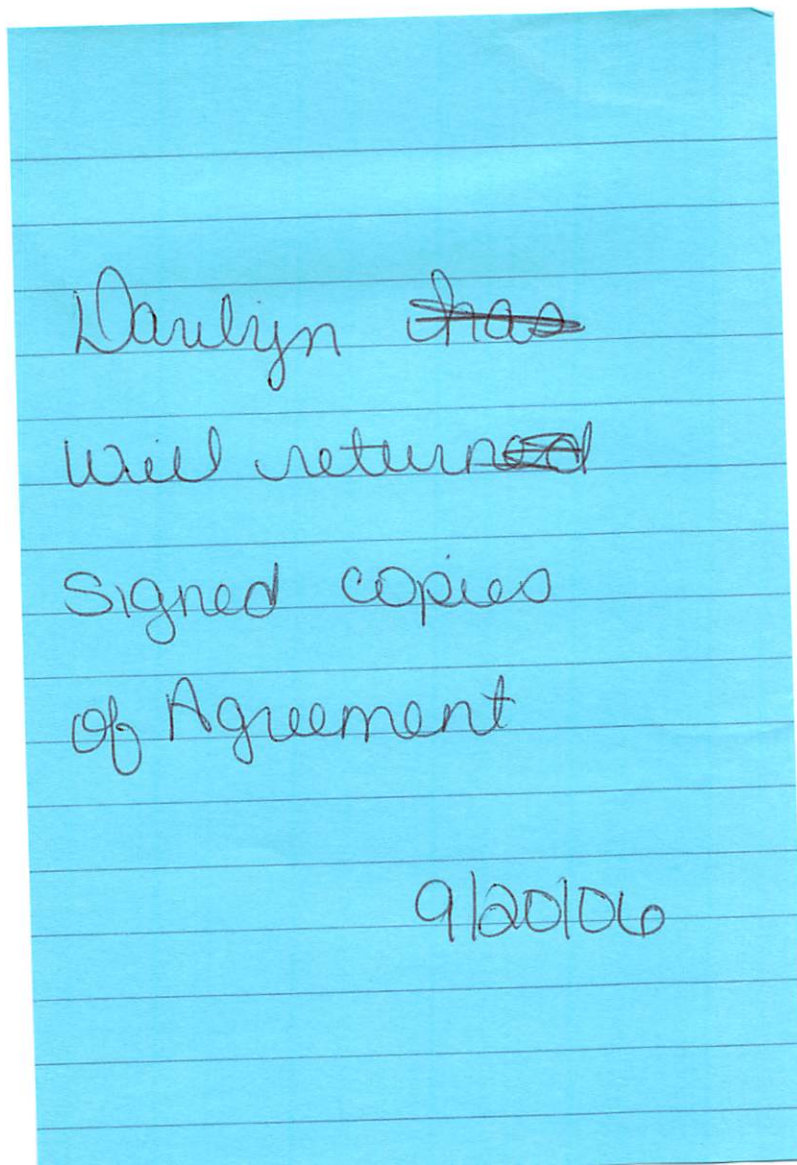 Darilyn has
will returned
Signed copies
of Agreement
9/20/06